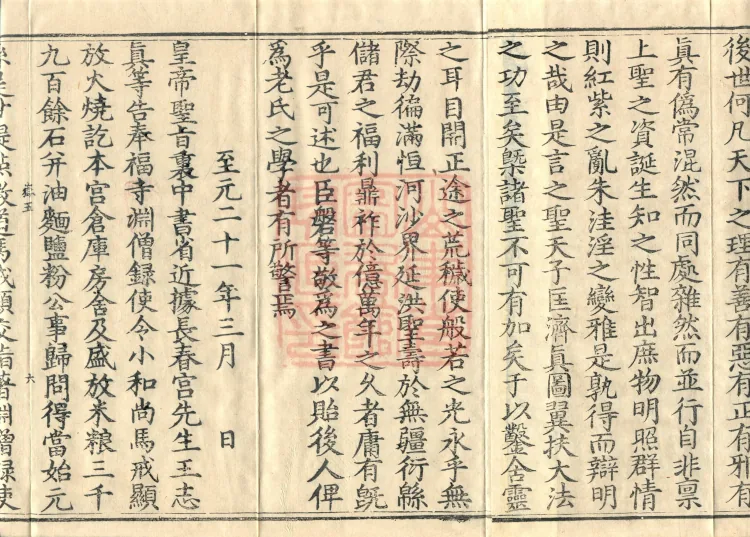 後世何凡天下之理有善有惡有正有邪有
眞有偽常混然而同處雜然而並行自非禀
上聖之資誕生知之性智出庶物明照群情
則紅紫之亂朱洼淫之變雅是孰得而辯明
之哉由是言之聖天子匡濟眞圖翼扶大法
之功至矣槩諸聖不可有加矣于以鑿含靈
之耳目開正途之荒穢使般若之光永乎無
際劫徧滿恒河沙界延洪聖壽於無疆衍緜
儲君之福利鼎祚於億萬年之久者庸有旣
乎是可述也臣磐等敬爲之書以貽後人俾
爲老氏之學者有所警焉
至元二十一年三月 日
皇帝聖旨裏中書省近據長春宮先生王志
眞等告奉福寺淵僧録使令小和尚馬戒顯
放火燒訖本宮倉庫房舍及盛放米粮三千
九百餘石并油麵鹽粉公事歸問得當始元
六